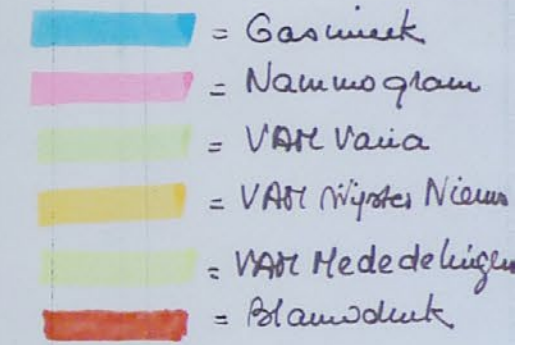 = Gasuniek
= Nammogram
= VAM Varia
= VAM Wijster Nieuws
= VAM Mededelingen
= Blauwdruk